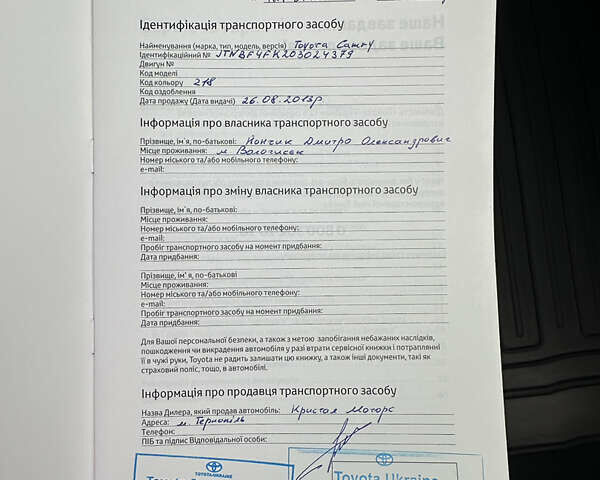 Ідентифікація транспортного засобу
Найменування (марка, тип, модель, версія) Toyota Camry
Ідентифікаційний № JTNBF4FK203024379
Двигун №
Код моделі
Код кольору 218
Код оздоблення
Дата продажу (Дата видачі) 26.08.2013р.
Інформація про власника транспортного засобу
Прізвище, ім'я, по-батькові: Йончик Дмитро Олександрович
Місце проживання: м
Номер міського та/або мобільного телефону:
e-mail:
Інформація про зміну власника транспортного засобу
Прізвище, ім'я, по-батькові:
Місце проживання:
Номер міського та/або мобільного телефону:
e-mail:
Пробіг транспортного засобу на момент придбання:
Дата придбання:
Прізвище, ім'я, по-батькові
Місце проживання:
Номер міського та/або мобільного телефону:
e-mail:
Пробіг транспортного засобу на момент придбання:
Дата придбання:
Для Вашої персональної безпеки, а також з метою запобігання небажаних наслідків,
пошкодження чи викрадення автомобіля у разі втрати сервісної книжки і потраплянні
її в чужі руки, Toyota не радить залишати цю книжку, а також інші документи, такі як
страховий поліс, тощо, в автомобілі.
Інформація про продавця транспортного засобу
Назва Дилера, який продав автомобіль: Кристал Моторс
Адреса: м. Тернопіль
Телефон:
ПІБ та підпис Відповідальної особи:
TOYOTA UKRAINE
Toyota Ukraine